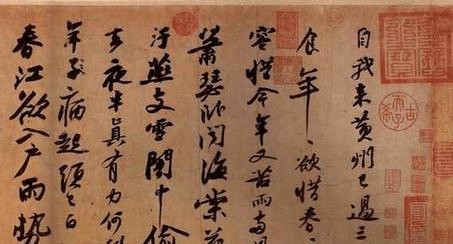 自我來黃州已過三
食年、欲惜春
容惜今年又苦雨兩月
蕭瑟臥聞海棠花
汙燕支雪闇中偷
去夜半真有力何殊
年子病起頭已白
春江欲入戶雨勢
古希天子